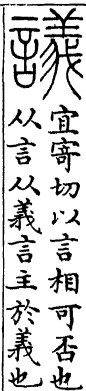 議
宜寄切以言相可否也
从言从義言主於義也